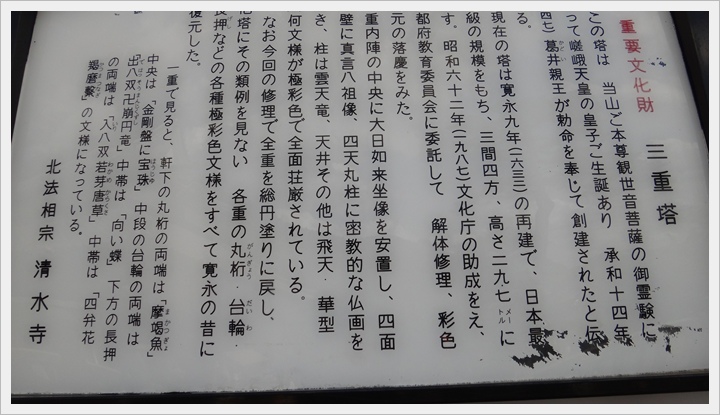 重要文化財
三重塔
この塔は 当山ご本尊観世音菩薩の御霊験に
って嵯峨天皇の皇子ご生誕あり 承和十四年
四七)葛井親王が勅命を奉じて創建されたと伝
現在の塔は寛永九年(一六三三)の再建で、日本最
級の規模をもち、三間四方、高さ二九.七メートルに
す。昭和六十二年(一九八七)文化庁の助成をえ、
都府教育委員会に委託して 解体修理、彩色
元の落慶をみた。
重内陣の中央に大日如来坐像を安置し、四面
壁に真言八祖像、四天丸柱に密教的な仏画を
き、柱は雲天竜、天井その他は飛天、華型
何文様が極彩色で全面荘厳されている。
なお今回の修理で全重を総円塗りに戻し、
他塔にその類例を見ない 各重の丸桁・台輪・
長押などの各種極彩色文様をすべて寛永の昔に
復元した。
一重で見ると、軒下の丸桁の両端は「摩竭魚」
中央は「金剛盤に宝珠」中段の台輪の両端は
「出八双卍崩円竜」中帯は「向い蝶」下方の長押
の両端は「入八双若芽唐草」中帯は「四弁花
羯磨繋」の文様になっている。
北法相宗 清水寺